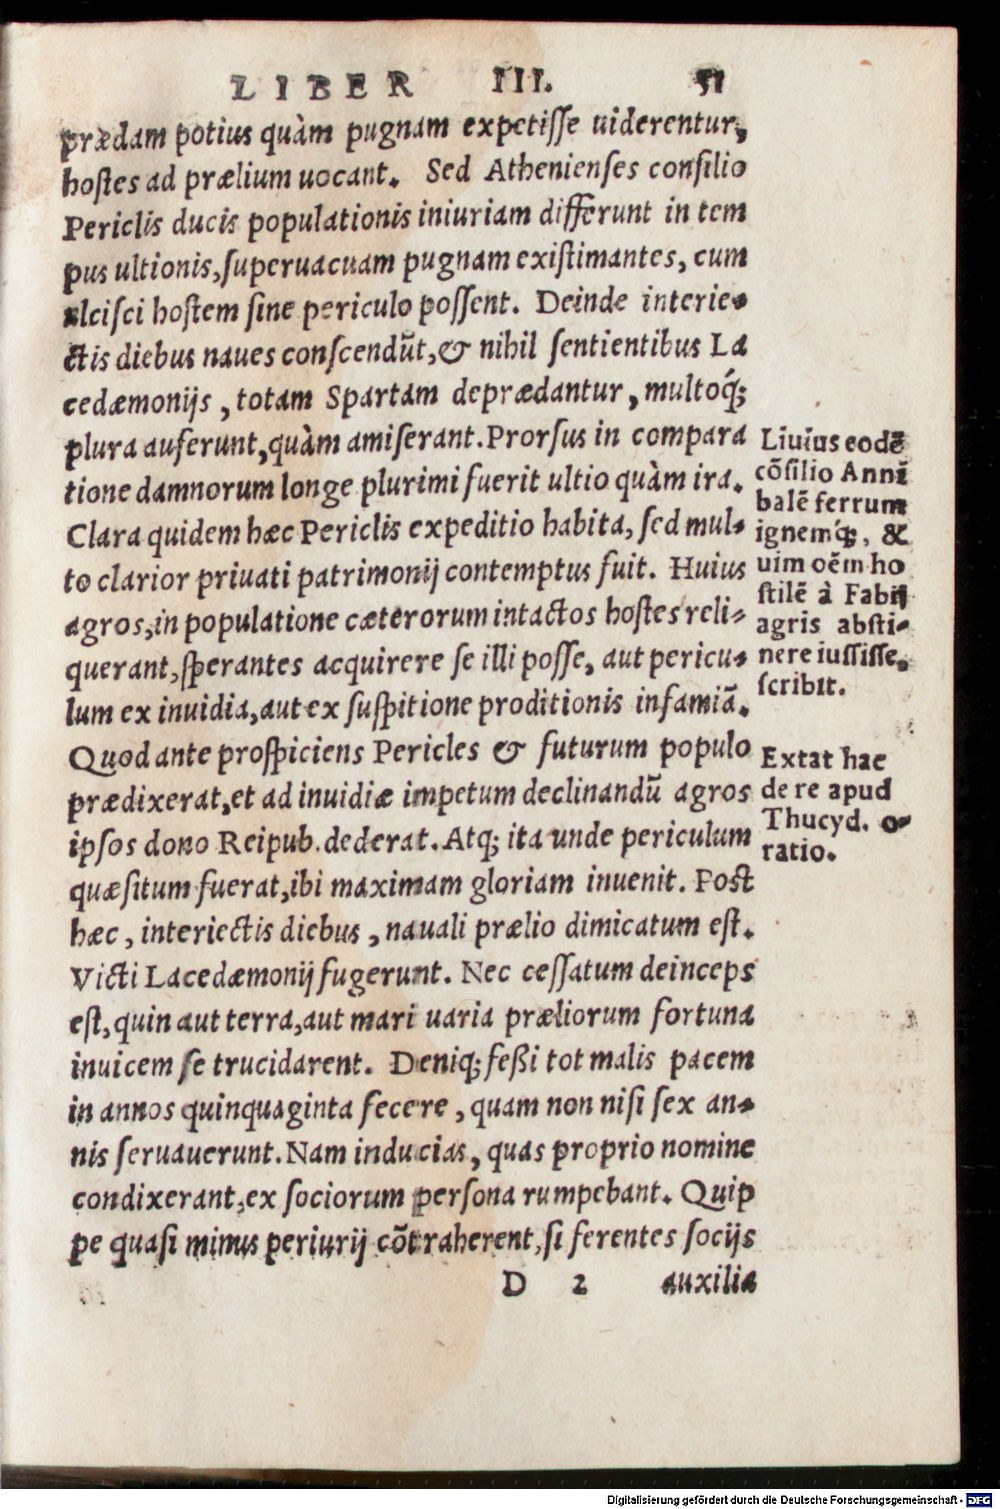 LIBER III. 51
prædam potius quàm pugnam expetisse uiderentur,
hostes ad prælium uocant. Sed Athenienses consilio
Periclis ducis populationis iniuriam differunt in tem
pus ultionis, superuacuam pugnam existimantes, cum
ulcisci hostem sine periculo possent. Deinde interie-
ctis diebus naues conscendūt, & nihil sentientibus La
cedæmonijs, totam Spartam deprædantur, multoq́;
plura auferunt, quàm amiserant. Prorsus in compara
tione damnorum longe plurimi fuerit ultio quàm ira.
Clara quidem hæc Periclis expeditio habita, sed mul-
to clarior priuati patrimonij contemptus fuit. Huius
agros, in populatione cæterorum intactos hostes reli-
querant, sperantes acquirere se illi posse, aut pericu-
lum ex inuidia, aut ex suspitione proditionis infamiā.
Quod ante prospiciens Pericles & futurum populo
prædixerat, et ad inuidiæ impetum declinandū agros
ipsos dono Reipub. dederat. Atq; ita unde periculum
quæsitum fuerat, ibi maximam gloriam inuenit. Post
hæc, interiectis diebus, nauali prælio dimicatum est.
Victi Lacedæmonij fugerunt. Nec cessatum deinceps
est, quin aut terra, aut mari uaria præliorum fortuna
inuicem se trucidarent. Deniq; feßi tot malis pacem
in annos quinquaginta fecere, quam non nisi sex an-
nis seruauerunt. Nam inducias, quas proprio nomine
condixerant, ex sociorum persona rumpebant. Quip
pe quasi minus periurij cōtraherent, si ferentes socijs
D 2 auxilia
Liuius eodē
cōsilio Annī
balē ferrum
ignemq́;, &
uim oēm ho
stilē à Fabij
agris absti-
nere iussisse,
scribit.
Extat hac
de re apud
Thucyd. o-
ratio.
Digitalisierung gefördert durch die Deutsche Forschungsgemeinschaft - DFG